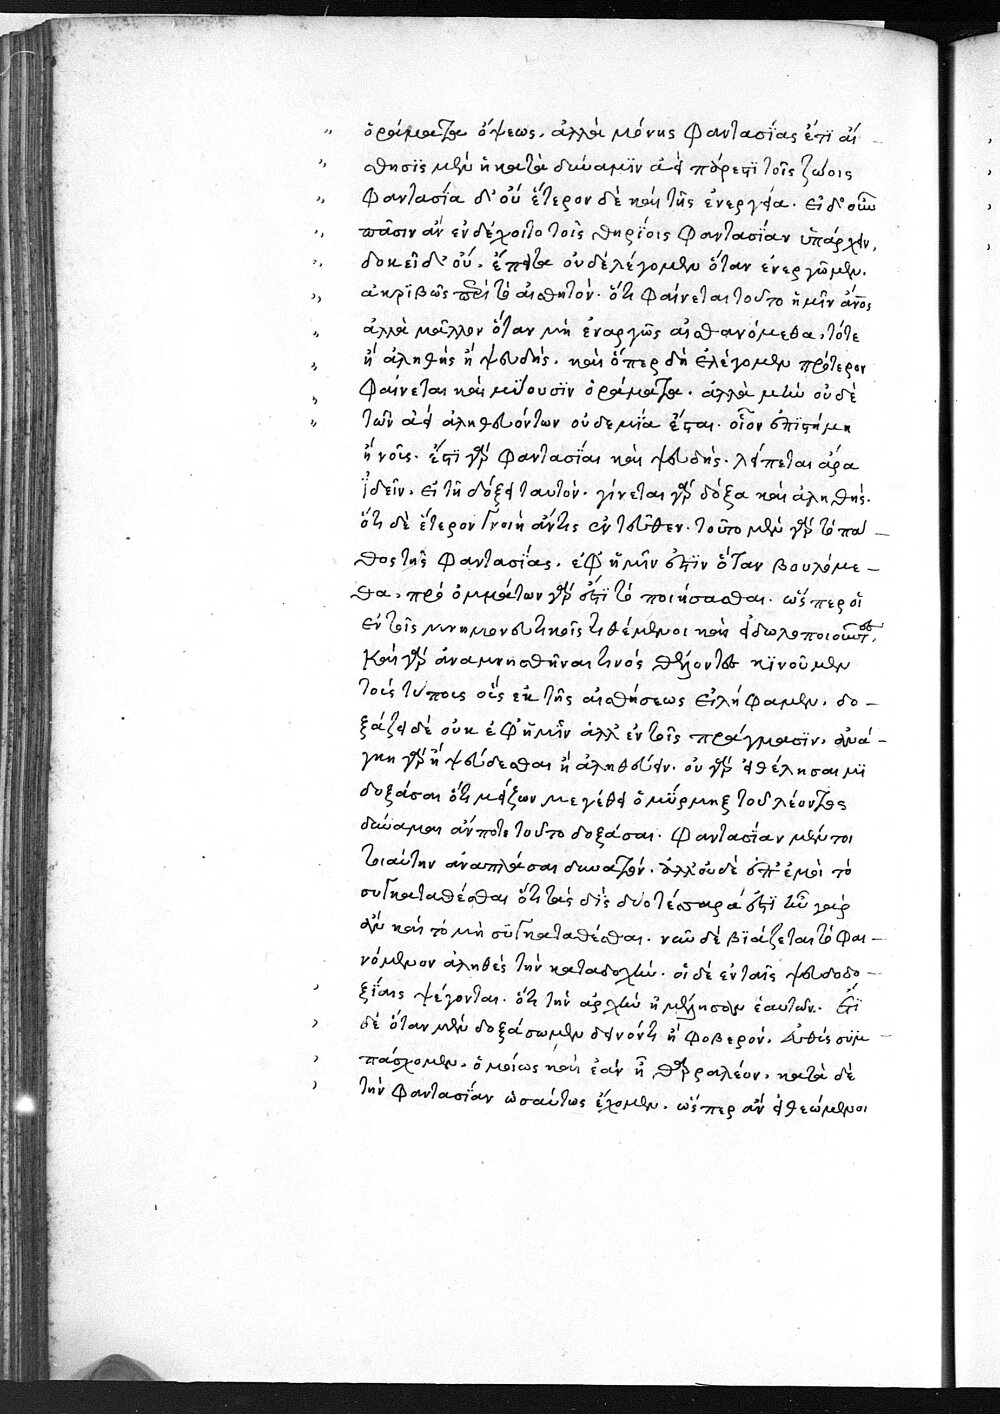 ὁράματα ὄψεως. ἀλλὰ μόνης φαντασίας ἔτϊ αἴ-
θησϊς μὲν ἢ κατὰ δύναμϊν ἀεὶ πάρεστϊ τοῖς ζώοις
φαντασία δ' οὔ ἕτερον δὲ καὶ τῆς ἐνεργεία. εἰ δ' οὖν
πᾶσιν ἂν ἐνδέχοιτο τοῖς θηρίοις φαντασίαν ὑπάρχειν,
δοκεῖ δ' οὔ. ἔπειτα οὐδὲ λέγομεν ὅταν ἐνεργῶμεν.
ἀκρϊβῶς περὶ τὸ αἰσθητόν. ὅτι φαίνεται τοῦτο ἡμῖν ἄνος
ἀλλὰ μᾶλλον ὅταν μὴ ἐναργῶς αἰσθανόμεθα, τότε
ἢ ἀληθὴς ἢ ψευδής. καὶ ὅπερ δὴ ἐλέγομεν πρότερον
φαίνεται καὶ μύουσϊν ὁράματα. ἀλλὰ μὴν οὐδὲ
τῶν ἀεὶ ἀληθευόντων οὐδεμία ἔσται. οἷον ἐπϊστήμη
ἢ νοῦς. ἔστϊ γὰρ φαντασΐαι καὶ ψευδής. λείπεται ἄρα
ϊδεῖν. εἰ τῇ δόξει ταυτόν. γίνεται γὰρ δόξα καὶ ἀληθής.
ὅτι δὲ ἕτερον γνοίη ἄν τις ἐντεῦθεν. τοῦτο μὲν γὰρ τὸ πά-
θος τῆς φαντασΐας. ἐφ' ἡμῖν ἐστϊν ὅταν βουλόμε-
θα. πρὸ ὀμμάτων γὰρ ἐστϊ τὸ ποιήσασθαι. ὥσπερ οἱ
ἐν τοῖς μνημονευτικοῖς τιθέμενοι καὶ εἰδωλοποιοῦντες.
καὶ γὰρ ἀναμνησθῆναι τινὸς θέλοντες κϊνοῦμεν
τοὺς τύπους οὓς ἐκ τῆς αἰσθήσεως εἰλήφαμεν. δο-
ξάζειν δὲ οὐκ ἐφ' ἡμῖν ἀλλ' ἐν τοῖς πράγμασϊν. ἀνά-
γκη γὰρ ἢ ψεύδεσθαι ἢ ἀληθεύειν. οὐ γὰρ εἰ θέλησαι μϊ
δοξάσαι ὅτι μείζων μεγέθει ὁ μύρμηξ τοῦ λέοντος
δύναμαι ἄν ποτε τοῦτο δοξάσαι. φαντασΐαν μέν τοι
τοιαύτην ἀναπλάσαι δυνατόν. ἀλλ' οὐδὲ ἐπ' ἐμοὶ τὸ
συγκαταθέσθαι ὅτι τὰς δὶς δύο τέσσαρά ἐστϊ
καὶ τὸ μὴ συγκαταθέσθαι. νῦν δὲ βϊάζεται τὸ φαι-
νόμενον ἀληθὲς τὴν καταδοχήν. οἱ δὲ ἐν ταῖς ψευδοδο-
ξΐαις ψέγονται. ὅτι τὴν ἀρχὴν ἠμέλησαν ἑαυτῶν. ἔτϊ
δὲ ὅταν μὲν δοξάσωμεν δεινόν τι ἢ φοβερόν. εὐθὺς συμ-
πάσχομεν. ὁμοίως κἂν ἐὰν ᾖ θαρραλέον. κατὰ δὲ
τὴν φαντασΐαν ὡσαύτως ἔχομεν. ὥσπερ ἂν εἰ θεώμενοι